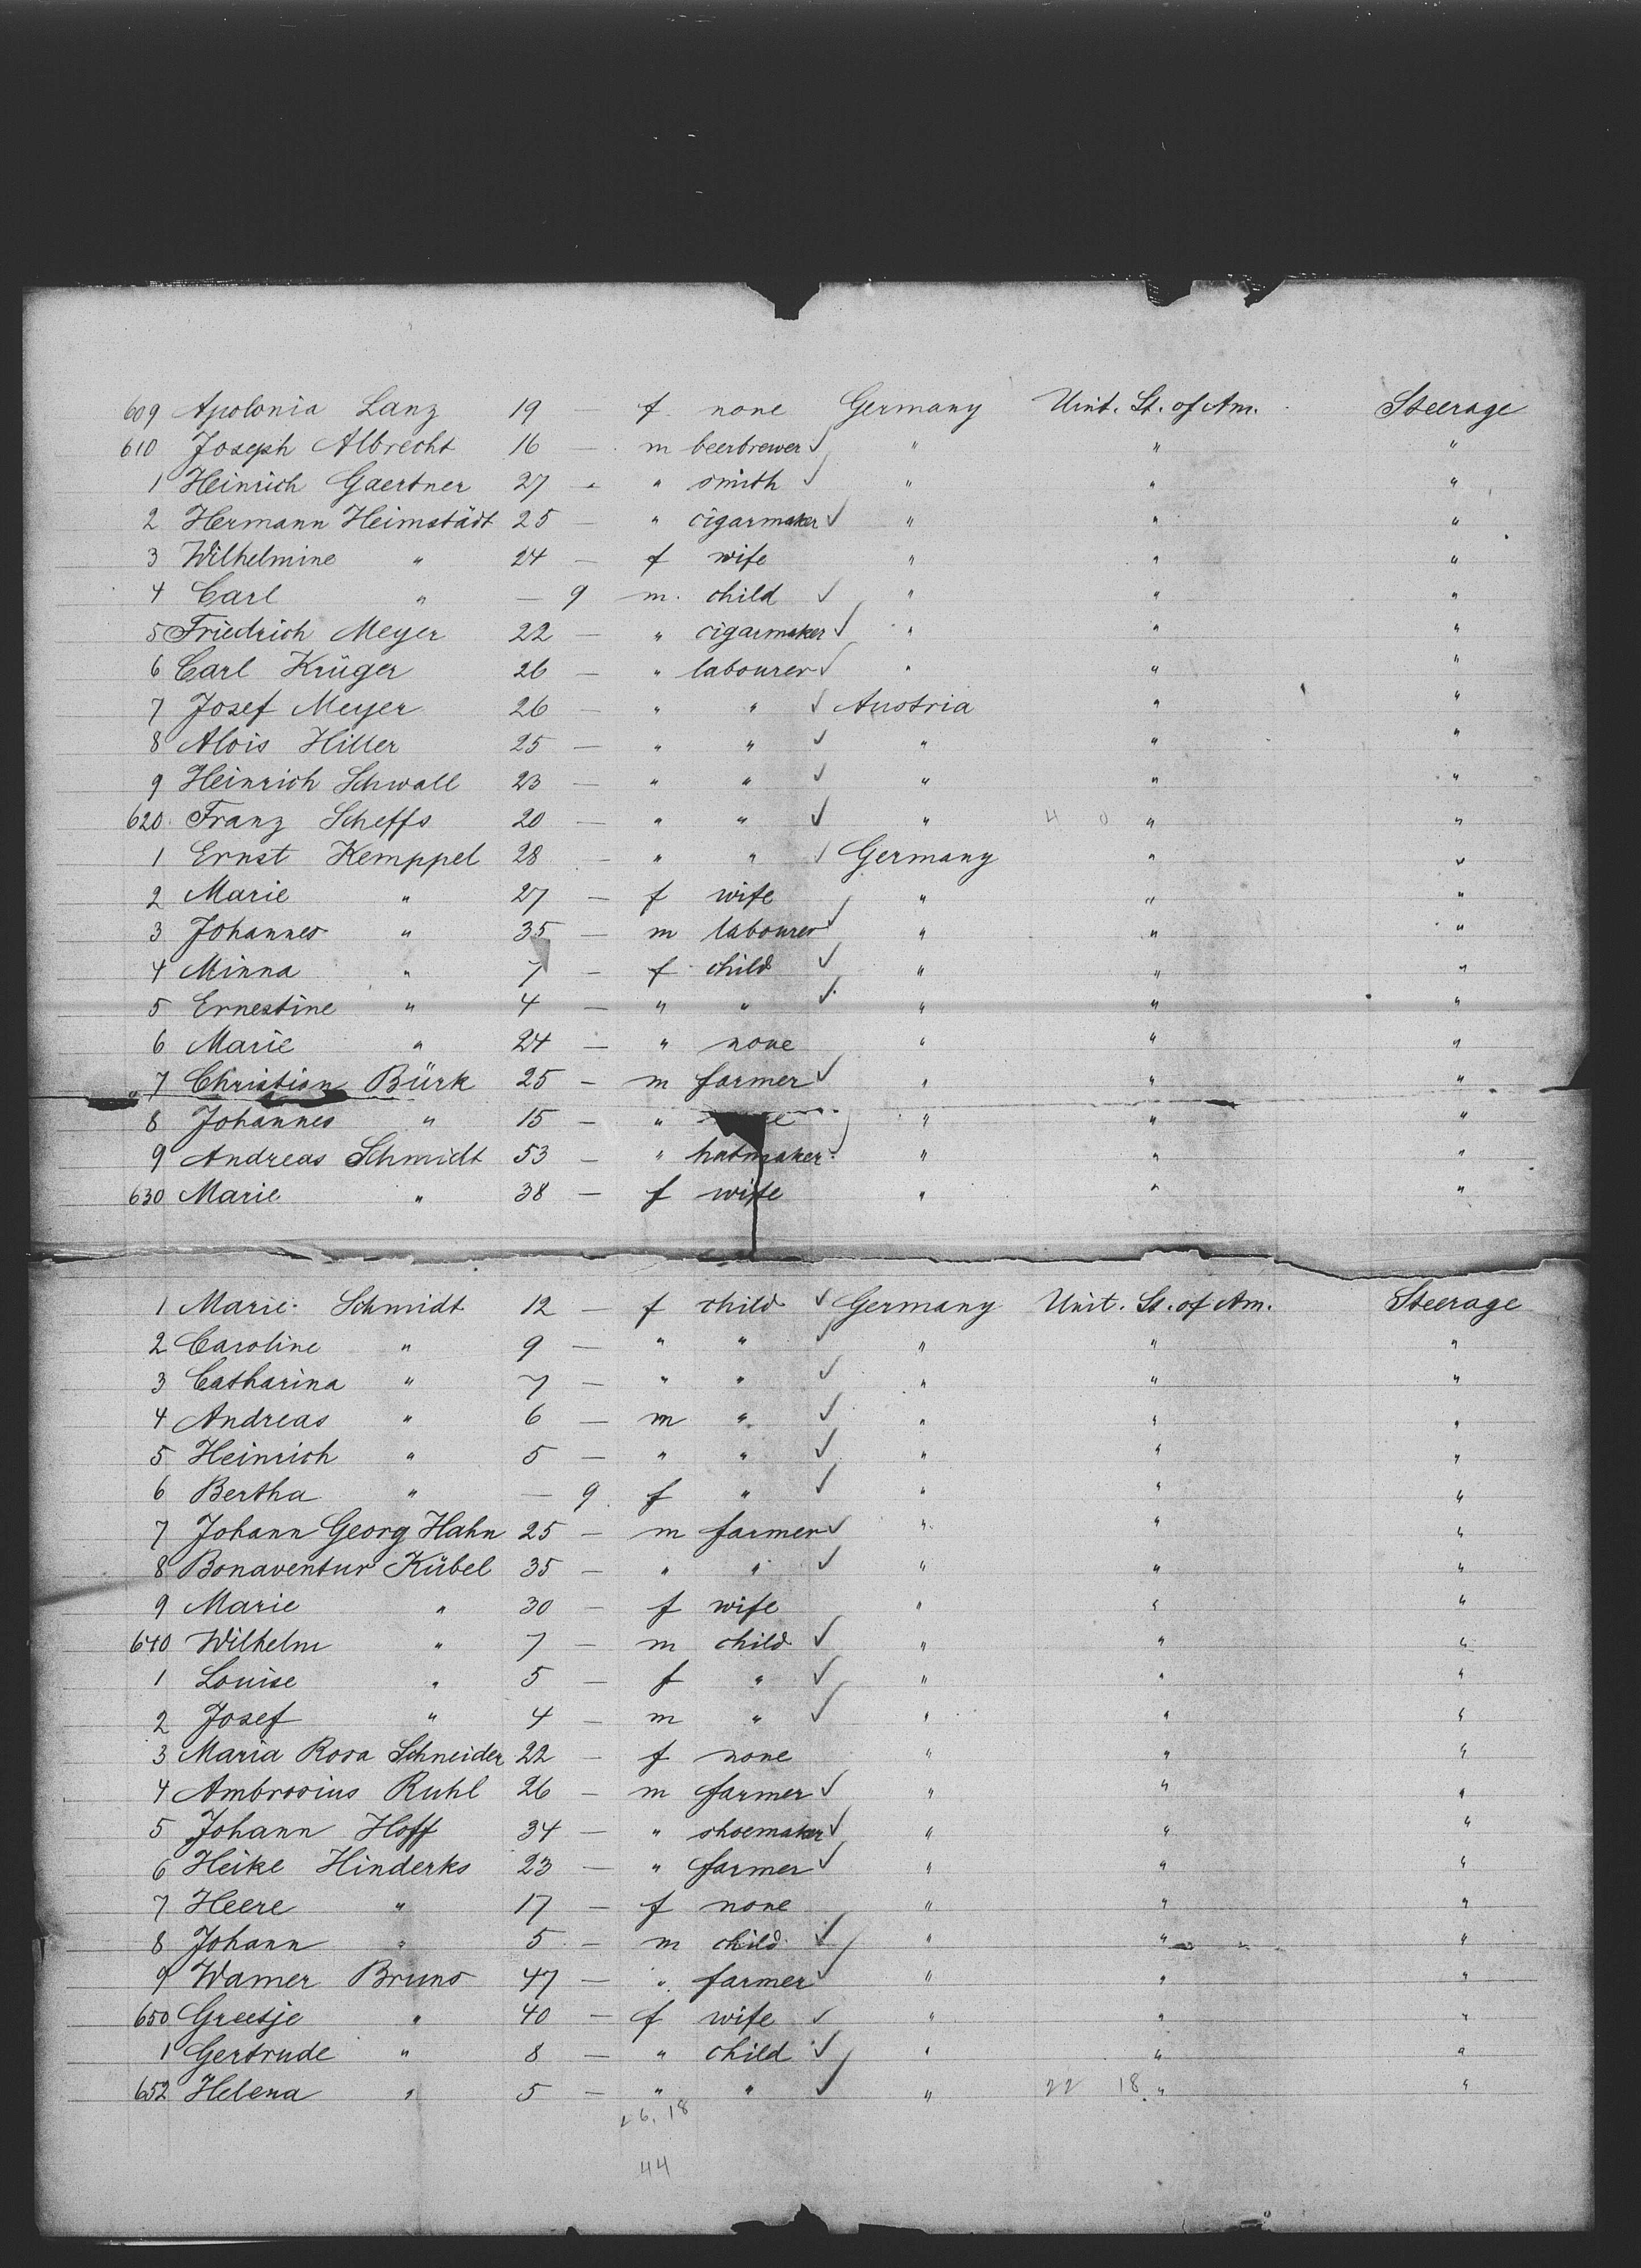 609 Apolonia Lanz 19 — f none Germany Unit. St. of Am. Steerage
610 Joseph Albrecht 16 — m beerbrewer ✓ " " "
1 Heinrich Gaertner 27 — " smith ✓ " " "
2 Hermann Heimstädt 25 — " cigarmaker ✓ " " "
3 Wilhelmine " 24 — f wife " " "
4 Carl " — 9 m. child ✓ " " "
5 Friedrich Meyer 22 — " cigarmaker ✓ " " "
6 Carl Krüger 26 — " labourer ✓ " " "
7 Josef Meyer 26 — " " ✓ Austria " "
8 Alois Hiller 25 — " " ✓ " " "
9 Heinrich Schwall 23 — " " ✓ " " "
620 Franz Scheffs 20 — " " ✓ " 4 0 " "
1 Ernst Kemppel 28 — " " ✓ Germany " "
2 Marie " 27 — f wife " " "
3 Johannes " 35 — m labourer ✓ " " "
4 Minna " 7 — f child ✓ " " "
5 Ernestine " 4 — " " ✓ " " "
6 Marie " 24 — " none " " "
7 Christian Bürk 25 — m farmer ✓ " " "
8 Johannes " 15 — " " " "
9 Andreas Schmidt 53 — " hatmaker ✓ " " "
630 Marie " 38 — f wife " " "
1 Marie Schmidt 12 — f child ✓ Germany Unit. St. of Am. Steerage
2 Caroline " 9 — " " ✓ " " "
3 Catharina " 7 — " " ✓ " " "
4 Andreas " 6 — m " ✓ " " "
5 Heinrich " 5 — " " ✓ " " "
6 Bertha " — 9 f " ✓ " " "
7 Johann Georg Hahn 25 — m farmer ✓ " " "
8 Bonaventur Kübel 35 — " " ✓ " " "
9 Marie " 30 — f wife " " "
640 Wilhelm " 7 — m child ✓ " " "
1 Louise " 5 — f " ✓ " " "
2 Josef " 4 — m " ✓ " " "
3 Maria Rosa Schneider 22 — f none " " "
4 Ambrosius Ruhl 26 — m farmer ✓ " " "
5 Johann Hoff 34 — " shoemaker ✓ " " "
6 Heike Hinderks 23 — " farmer ✓ " " "
7 Heere " 17 — f none " " "
8 Johann " 5 — m child ✓ " " "
9 Warner Bruns 47 — " farmer ✓ " " "
650 Greetje " 40 — f wife ✓ " " "
1 Gertrude " 8 — " child ✓ " " "
652 Helena " 5 — " " ✓ " 22 18 " "
26. 18
44